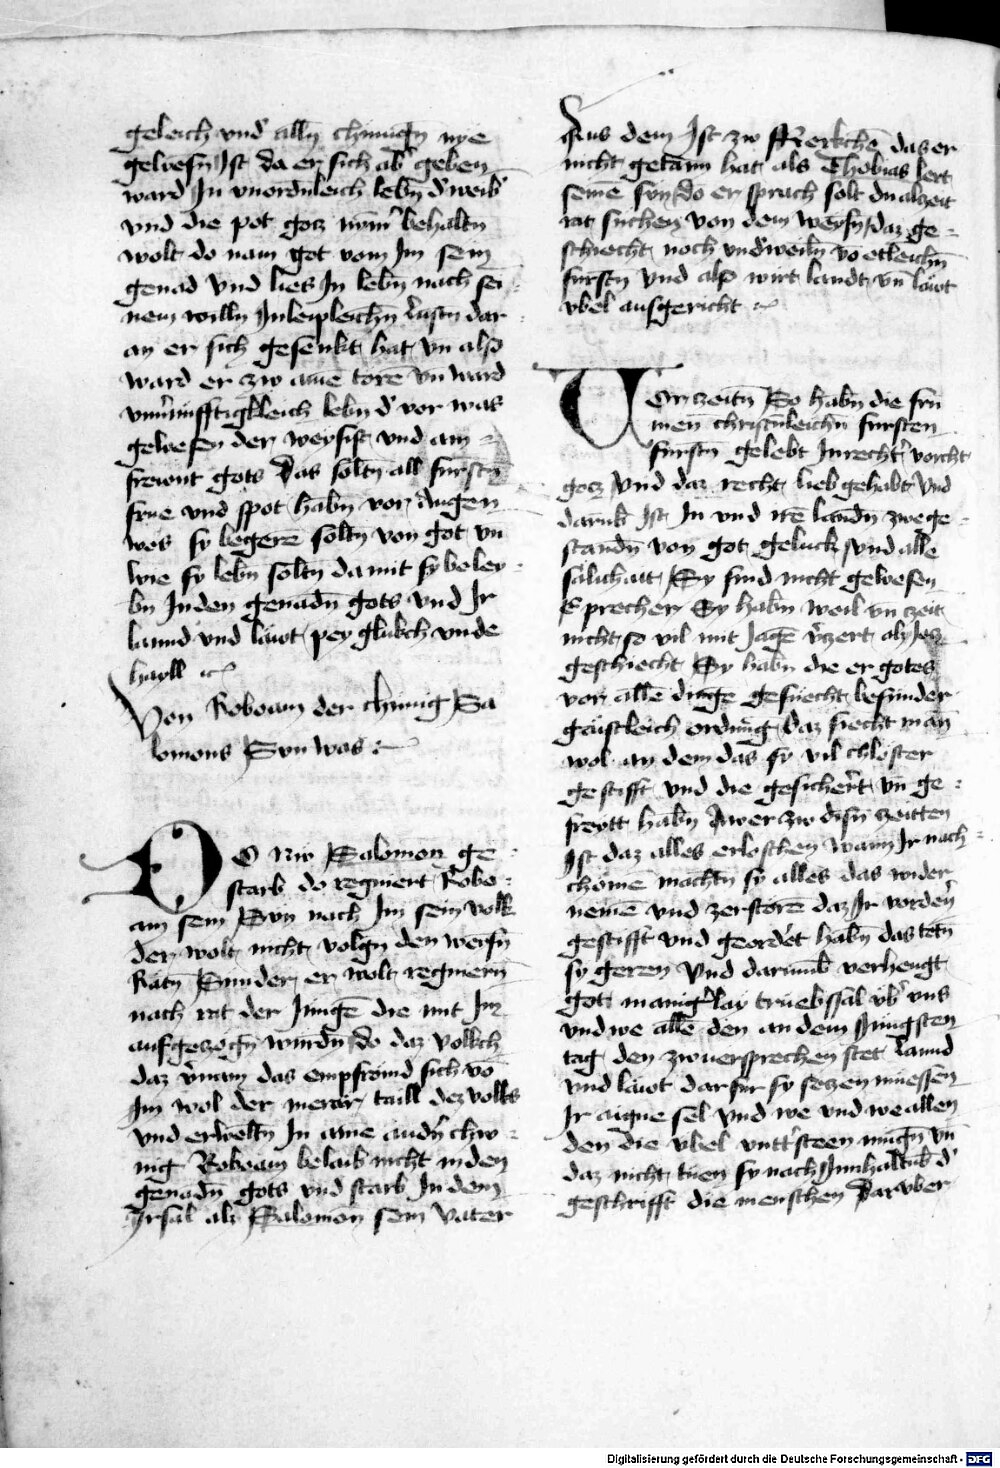 geleich vnd' alln chunign nye
gewesn Ist da er sich ab' geben
ward In vnordnleich lebn d' weib'
vnd die pot gotz nym' behaltn
wolt do nam got vom Im sein
genad vnd lies In lebn nach sei
nem willn Inleipleichn lustn dar
an er sich gesenkt hat vn also
ward er zw aine torē vn ward
vnu'nufftigkleich lebn d' vor was
gewesen der weysist vnd ain
frewnt gots Das soltn all furstn
frue vnd spot habn vor Augen
wes sy begerē soltn von got vn
wie sy lebn soltn damit sy beley
bn In den genadn gots vnd Ir
lannd vnd läwt pey glukch vnde
hayll
Von Roboam der chunig Sa
lomons Sun was
DO Nw Salomon ge
starb do regniert Robo
am sein Sun nach Im sein volk
der wolt nicht volgn den weisn
Ratn Sunder er wolt regniern
nach rat der Jungē die mit Im
aufgezogn wurdn do daz volkch
daz v'nam das empfrömd sich vō
Im wol der merär taill dez volks
vnd erweltn In aine andn' chw
nig Roboam belaib nicht in den
genadn gots vnd starb In dem
Irsal als Salomon sein vater
Aus dem Ist zw Merkchē das er
nicht getann hat als Thobias lert
seinē sun do er sprach solt du alzeit
rat suchen von dem weysn daz ge
schiecht noch vnd'weiln vō etleichn
furstn vnd also wirt landt vn läwt
vbel ausgericht
Vor zeitn So habn die fru
men christnleichn fursten
furstn gelebt In recht' vorcht
gotz vnd daz recht lieb gehabt vnd
darub Ist In vnd irē landn zwege
standn von got geluck vnd alle
sälichait Sy sind nicht gewesen
E precher Sy habn weil vn zeit
nicht so vil mit Jagē v'zert als Jetz
geschiecht Sy habn die er gotes
vor allē dinge gesuecht besunder
gäistleich ordnūg daz siecht man
wol an dem das sy vil chloster
gestifft vnd die gesichert vn ge
freytt habn Awer zw disn zeitten
Ist daz alles erloschen wann Ir nach
chömē machtn sy alles das wider
nemē vnd zerstorē daz Ir vordern
gestifft vnd geord'et habn das tetn
sy geren Vnd darumb verhengt
got manig'lay truebssal vb' vns
vnd we allē den an dem Jungsten
tag den zwuersprechen stet lannd
vnd läwt darfur sy setzen müessen
Ir aigne sel vnd we vnd we allen
den die vbel vntt'steen mugn vn
daz nicht tuen sy nach Innhaltūb d'
geschrifft die menschen Darvber
Digitalisierung gefördert durch die Deutsche Forschungsgemeinschaft - DFG